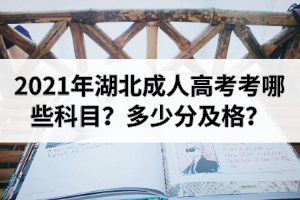 2021年湖北成人高考考哪
些科目？多少分及格？